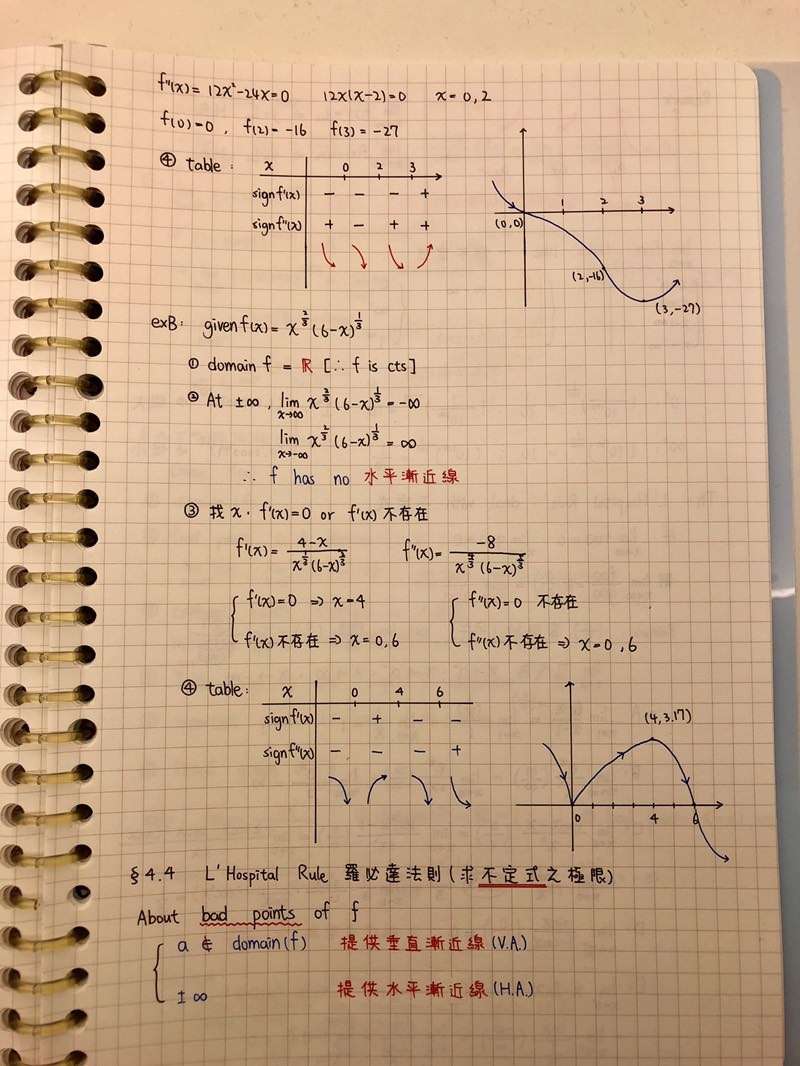 f''(x) = 12x²-24x=0 12x(x-2)=0 x=0,2
f(0)=0, f(2)=-16 f(3)=-27
④ table: x 0 2 3
sign f'(x) - - - +
sign f''(x) + - + +
1 2 3
(0,0)
(2,-16)
(3,-27)
exB: given f(x) = x^(2/3) (6-x)^(1/3)
① domain f = ℝ [∴ f is cts]
② At ±∞, lim x→∞ x^(2/3) (6-x)^(1/3) = -∞
lim x→-∞ x^(2/3) (6-x)^(1/3) = ∞
∴ f has no 水平漸近線
③ 找 x. f'(x)=0 or f'(x) 不存在
f'(x) = (4-x)/(x^(1/3) (6-x)^(2/3)) f''(x) = -8/(x^(4/3) (6-x)^(5/3))
f'(x)=0 ⇒ x=4 f''(x)=0 不存在
f'(x) 不存在 ⇒ x=0,6 f''(x) 不存在 ⇒ x=0,6
④ table: x 0 4 6
sign f'(x) - + - -
sign f''(x) - - - +
(4,3.17)
0 4 6
§4.4 L'Hospital Rule 羅必達法則(求不定式之極限)
About bad points of f
a ∉ domain(f) 提供垂直漸近線(V.A.)
±∞ 提供水平漸近線(H.A.)